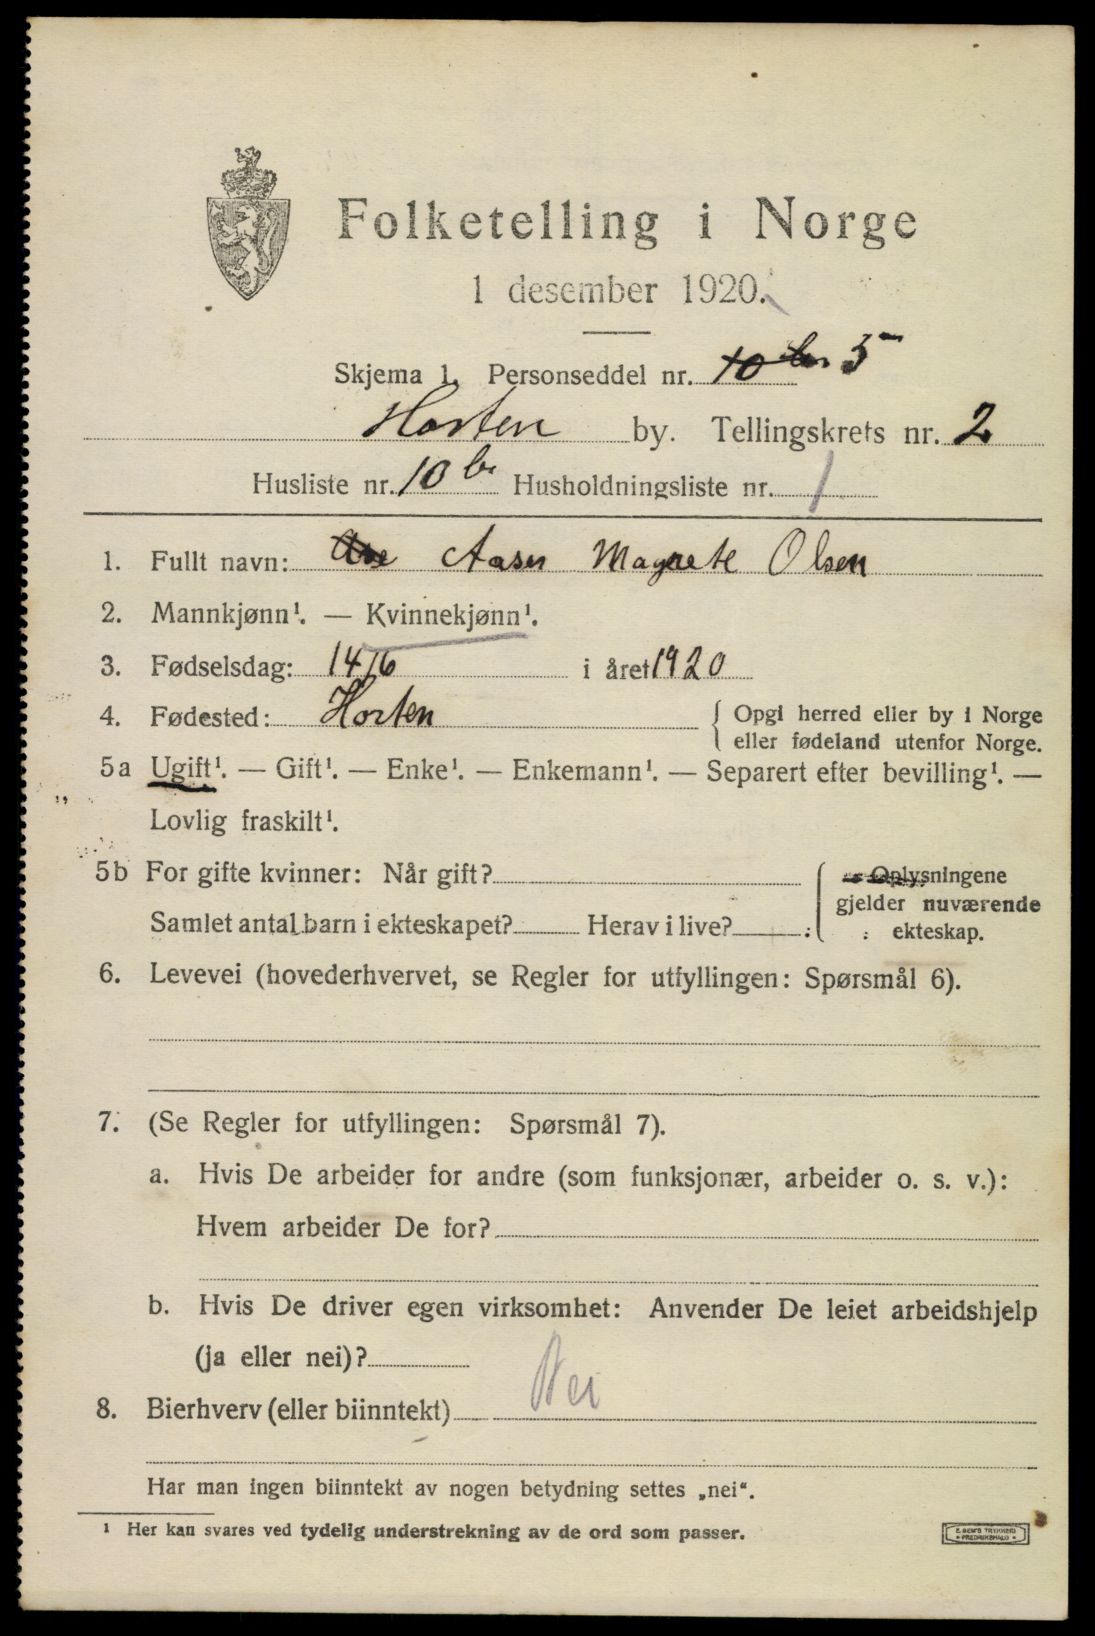 Folketelling i Norge
1 desember 1920.
Skjema 1. Personseddel nr. 10 b 5
Horten by. Tellingskrets nr. 2
Husliste nr. 10 b Husholdningsliste nr. 1
1. Fullt navn: Aasen Magrete Olsen
2. Mannkjønn¹. — Kvinnekjønn¹.
3. Fødselsdag: 14/6 i året 1920
4. Fødested: Horten { Opgi herred eller by i Norge
eller fødeland utenfor Norge.
5a Ugift¹. — Gift¹. — Enke¹. — Enkemann¹. — Separert efter bevilling¹. —
Lovlig fraskilt¹.
5b For gifte kvinner: Når gift? { Oplysningene
gjelder nuværende
Samlet antal barn i ekteskapet? Herav i live? ekteskap.
6. Levevei (hovederhvervet, se Regler for utfyllingen: Spørsmål 6).
7. (Se Regler for utfyllingen: Spørsmål 7).
a. Hvis De arbeider for andre (som funksjonær, arbeider o. s. v.):
Hvem arbeider De for?
b. Hvis De driver egen virksomhet: Anvender De leiet arbeidshjelp
(ja eller nei)?
8. Bierhverv (eller biinntekt) Nei
Har man ingen biinntekt av nogen betydning settes „nei“.
¹ Her kan svares ved tydelig understrekning av de ord som passer.
E. SEM'S TRYKKERI
FREDRIKSHALD